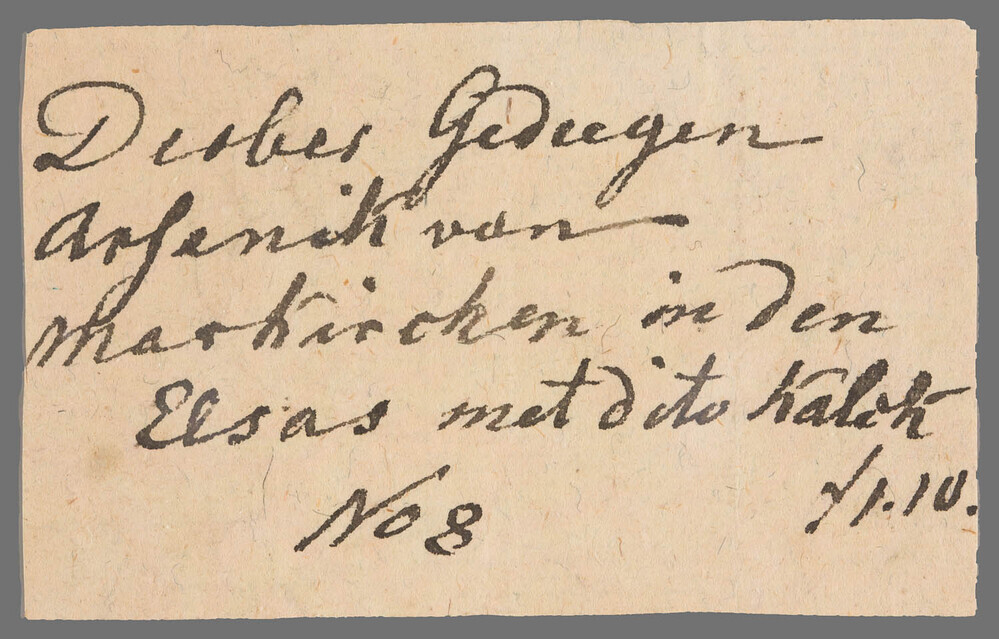 Derber Gedeegen
Arsenik von
Markirchen in den
Elsas met dito Kalck
No 8 f1.10.